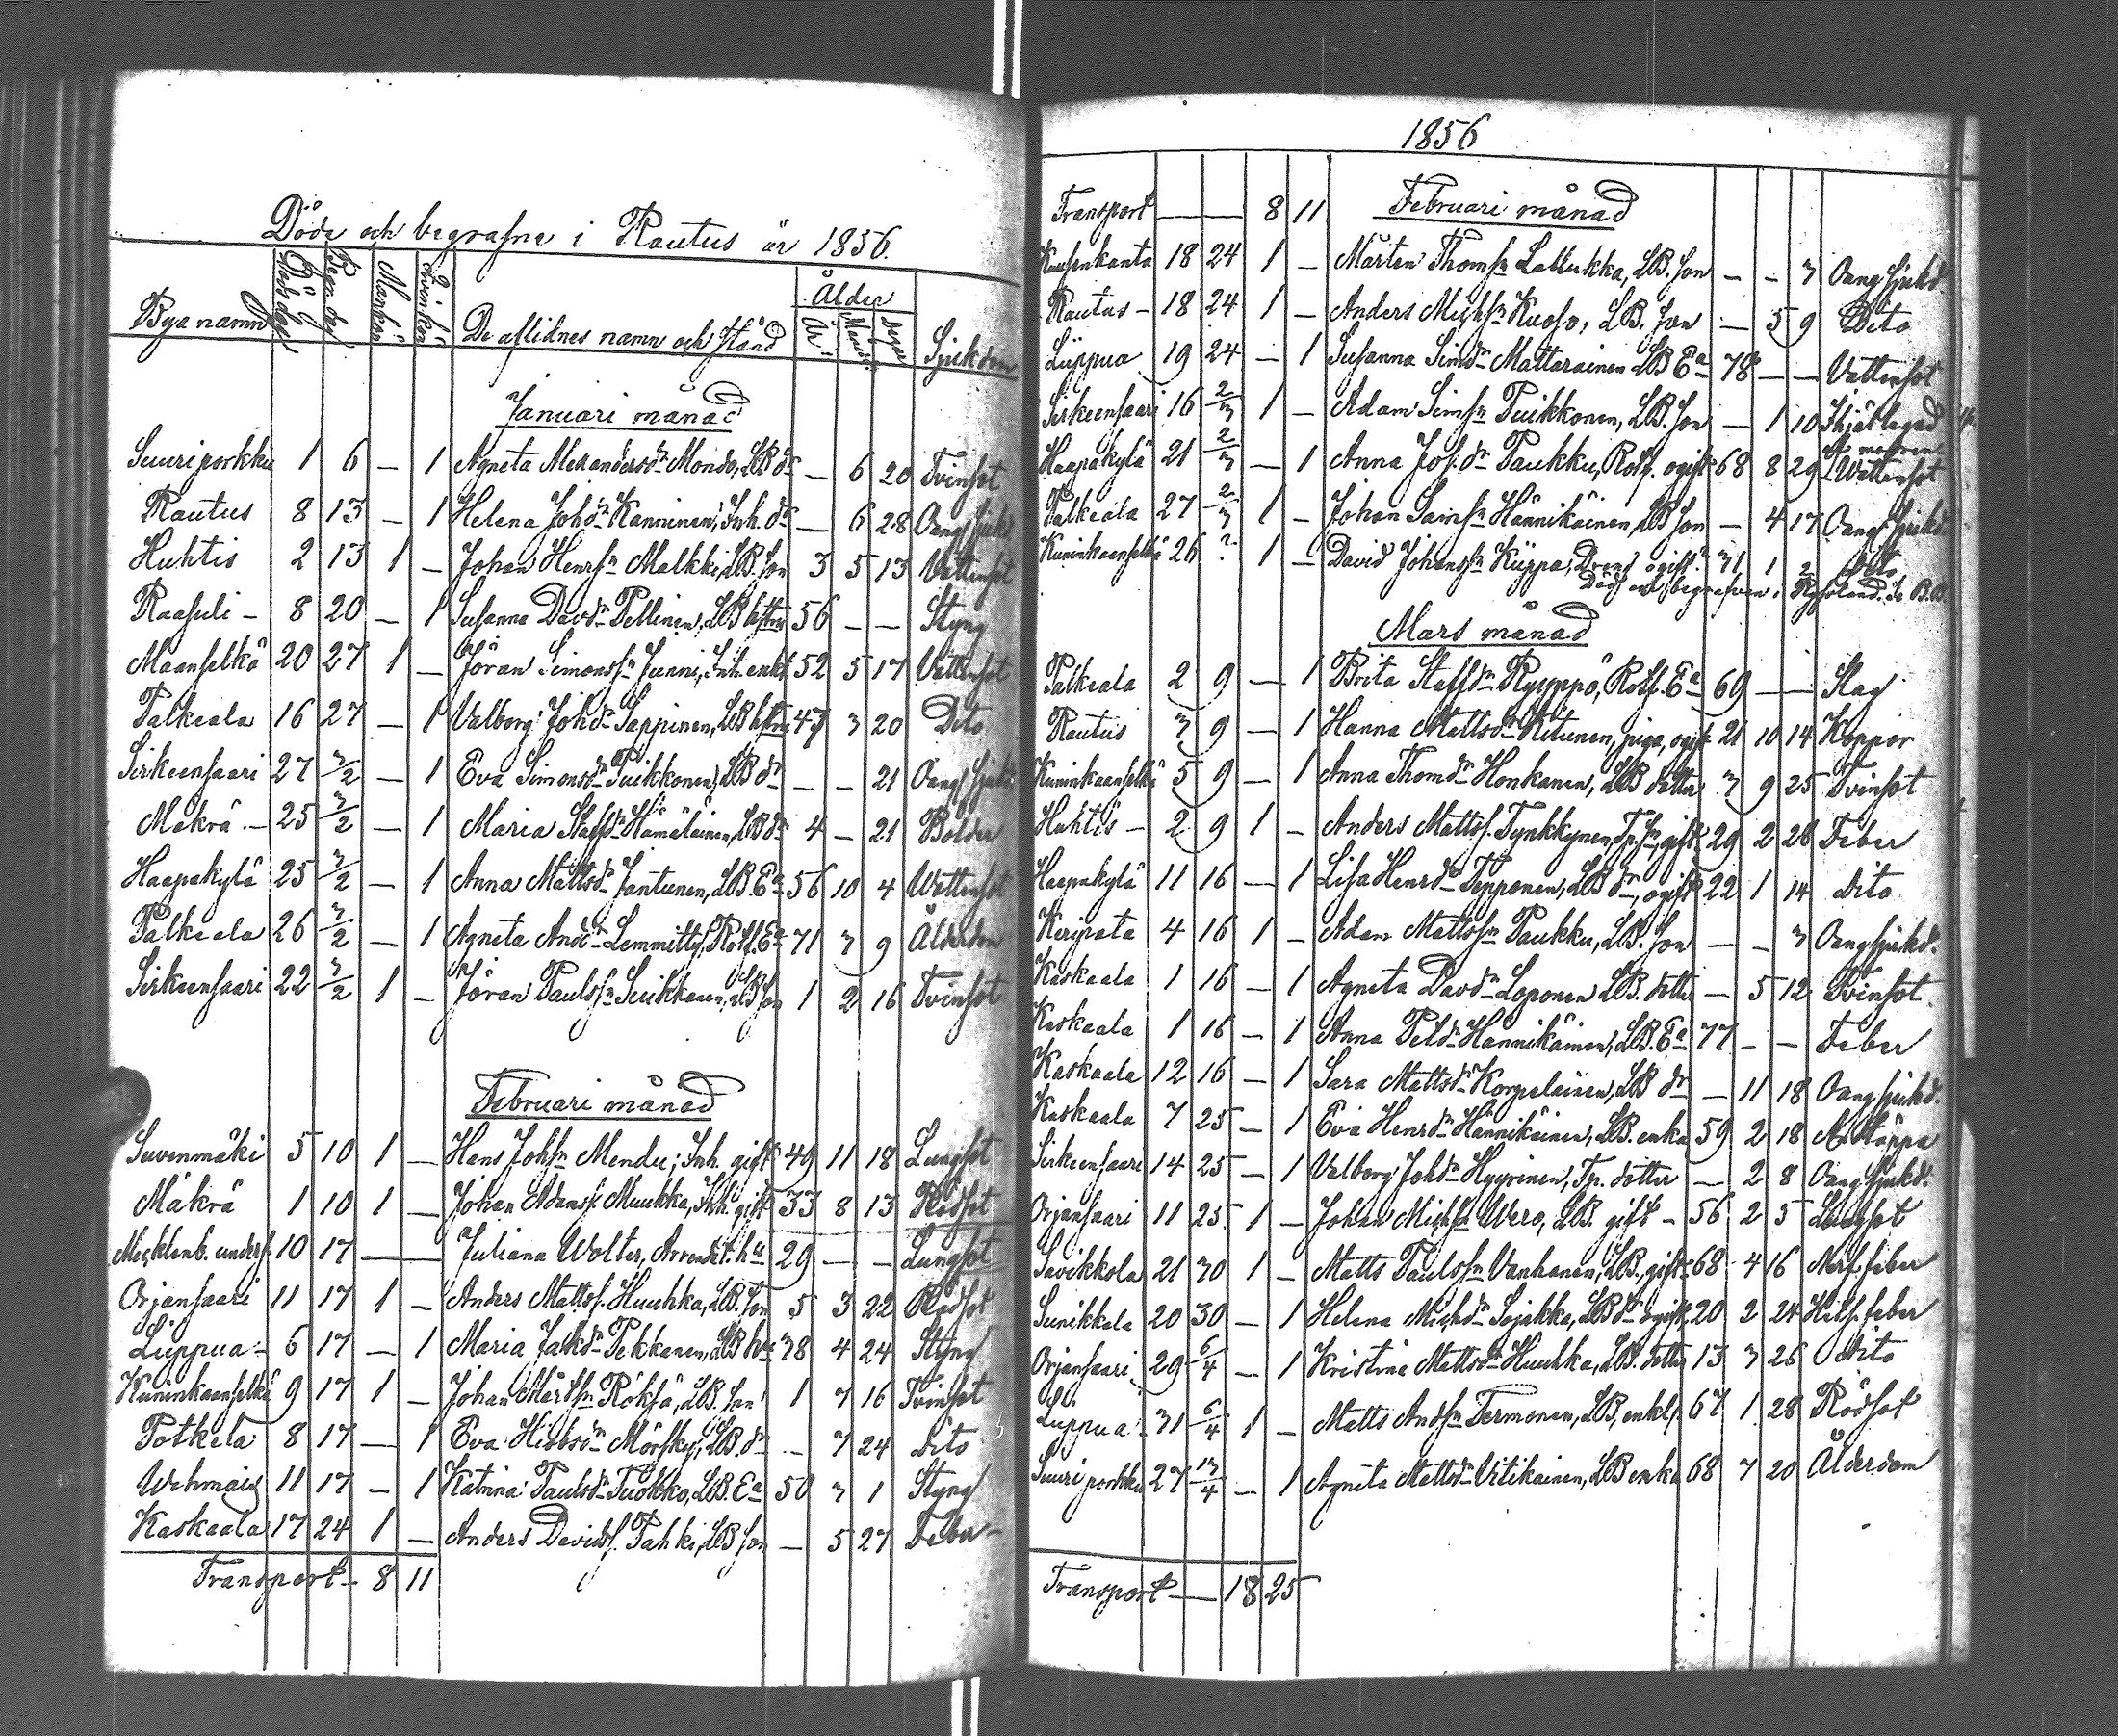 Döde och begrafne i Rautus år 1856.
Bya namn Döds dag Begr. dag Mankön Qvinkön De aflidnes namn och stånd Ålder År Månad Dagar Sjukdom
Januari månad
Suuriporkku 1 6 — 1 Agneta Alexandersdr Mondo, LB dr — 6 20 Tvinsot
Rautus 8 13 — 1 Helena Johdr Kanninen, Inh. dr — 6 28 Oang sjukd
Huhtis 2 13 1 — Johan Henrsn Malkki, LB. son 3 5 13 Vattensot
Raasuli — 8 20 — 1 Susanna Davdr Pellinen, LB hstru 56 — — Styng
Maanselkä 20 27 1 — Jöran Simonssn Junni, Inh. enkl 52 5 17 Vattensot
Palkeala 16 27 — 1 Valborg Johdr Sappinen, LB hstru 47 3 20 Dito
Sirkeensaari 27 3/2 — 1 Eva Simonsdr Puikkonen, LB dr — — 21 Oang sjukd
Mäkrä — 25 3/2 — 1 Maria Staffdr Hämäläinen, LB dr 4 — 21 Bölder
Haapakylä 25 3/2 — 1 Anna Mattsdr Jantunen, LB. Ea 56 10 4 Wattensot
Palkeala 26 3/2 — 1 Agneta Anddr Lemmitty, Rotf. Ea 71 3 9 Ålderdom
Sirkeensaari 22 3/2 1 — Jöran Paulssn Puikkonen, LB son 1 2 16 Tvinsot
Februari månad
Suvenmäki 5 10 1 — Hans Johsn Mendu, Inh. gift 49 11 18 Lungsot
Mäkrä 1 10 1 — Johan Adamsf. Muukka, Inh. gift 33 8 13 Rödsot
Mecklenb. unders. 10 17 — — Juliana Wolter, Arrendat. hu 29 — — Lungsot
Orjansaari 11 17 1 — Anders Mattss. Huuhka, LB. son 5 3 22 Rödsot
Lippua — 6 17 — 1 Maria Jakdr Pekkanen, LB hu 38 4 24 Styng
Kuninkaanselkä 9 17 1 — Johan Mårtsn Röksä, LB. son 1 7 16 Tvinsot
Potkela 8 17 — 1 Eva Mörsky, LB. dr — 7 24 dito
Wehmais 11 17 — 1 Katrina Paulsdr Tuokko, LB. Ea 50 3 1 Styng
Kaskaala 17 24 1 — Anders Davidsf. Pahki, LB son — 5 27 Feber
Transport — 8 11
1856
Transport — — 8 11 Februari månad
Kuusenkanta 18 24 1 — Mårten Thomsn Lallukka, LB. son — — 3 Oang sjukd
Rautus — 18 24 1 — Anders Michsn Kuoso, LB. son — 5 9 Dito
Lippua 19 24 — 1 Susanna Simdr Mattarainen LB Ea 78 — — Vattensot
Sirkeensaari 16 2/3 1 — Adam Simsn Puikkonen, LB. son — 1 10 Ihjältegad
af modren
Haapakylä 21 2/3 — 1 Anna Joh.dr Paukku, Rotf. ogift 68 8 29 Wattensot
Palkeala 27 2/3 1 — Johan Samsn Hännikäinen, LB son — 4 17 Oang sjukd
Kuninkaanselkä 26 ? 1 — David Johanssn Kiippa, Dreng ogift 31 1 2 dito
Död och begrafven i Ryssland.
Mars månad
Palkeala 2 9 — 1 Brita Staffdr Ryyppö, Rotf. Ea 69 — — Slag
Rautus 3 9 — 1 Hanna Mattsdr Ritunen, piga, ogift 21 10 14 Koppor
Kuninkaanselkä 5 9 — 1 Anna Thomdr Honkanen, LB dotter 3 9 25 Tvinsot
Huhtis — 2 9 1 — Anders Mattss. Tynkkynen, Tp. sn, gift 29 2 26 Feber
Haapakylä 11 16 — 1 Lisa Henrdr Tepponen, LB dr, ogift 22 1 14 dito
Keripata 4 16 1 — Adam Mattssn Paukku, LB. son — — 3 Oang sjukd.
Kaskaala 1 16 — 1 Agneta Davdr Loponen LB. dotter — 5 12 Tvinsot
Kaskaala 1 16 — 1 Anna Hännikäinen, LB. Ea 77 — — Feber
Kaskaala 12 16 — 1 Sara Mattsdr Korpelainen, LB dr — 11 18 Oang sjukd.
Kaskaala 7 25 — 1 Eva Henrdr Hännikäinen, LB. enka 59 2 18 Af käppa
Sirkeensaari 14 25 — 1 Valborg Johdr Hyyrinen, Tp. dotter — 2 8 Oang sjukd.
Orjansaari 11 25 1 — Johan Michsn Wero, LB. gift — 56 2 5 Lungsot
Savikkola 21 30 1 — Matts Paulssn Vanhanen, LB. gift 68 4 16 Nerf. feber
Sunikkala 20 30 — 1 Helena Michdr Sojakka, LB dr ogift 20 2 24 Hets. feber
Orjansaari 29 6/4 — 1 Kristina Mattsdr Huuhka, LB. dotter 13 3 26 dito
Lippua 31 6/4 1 — Matts Andsn Termonen, LB, enkl. 67 1 28 Rödsot
Suuri porkku 27 13/4 — 1 Agneta Mattsdr Vitikainen, LB enka 68 7 20 Ålderdom
Transport — 18 25